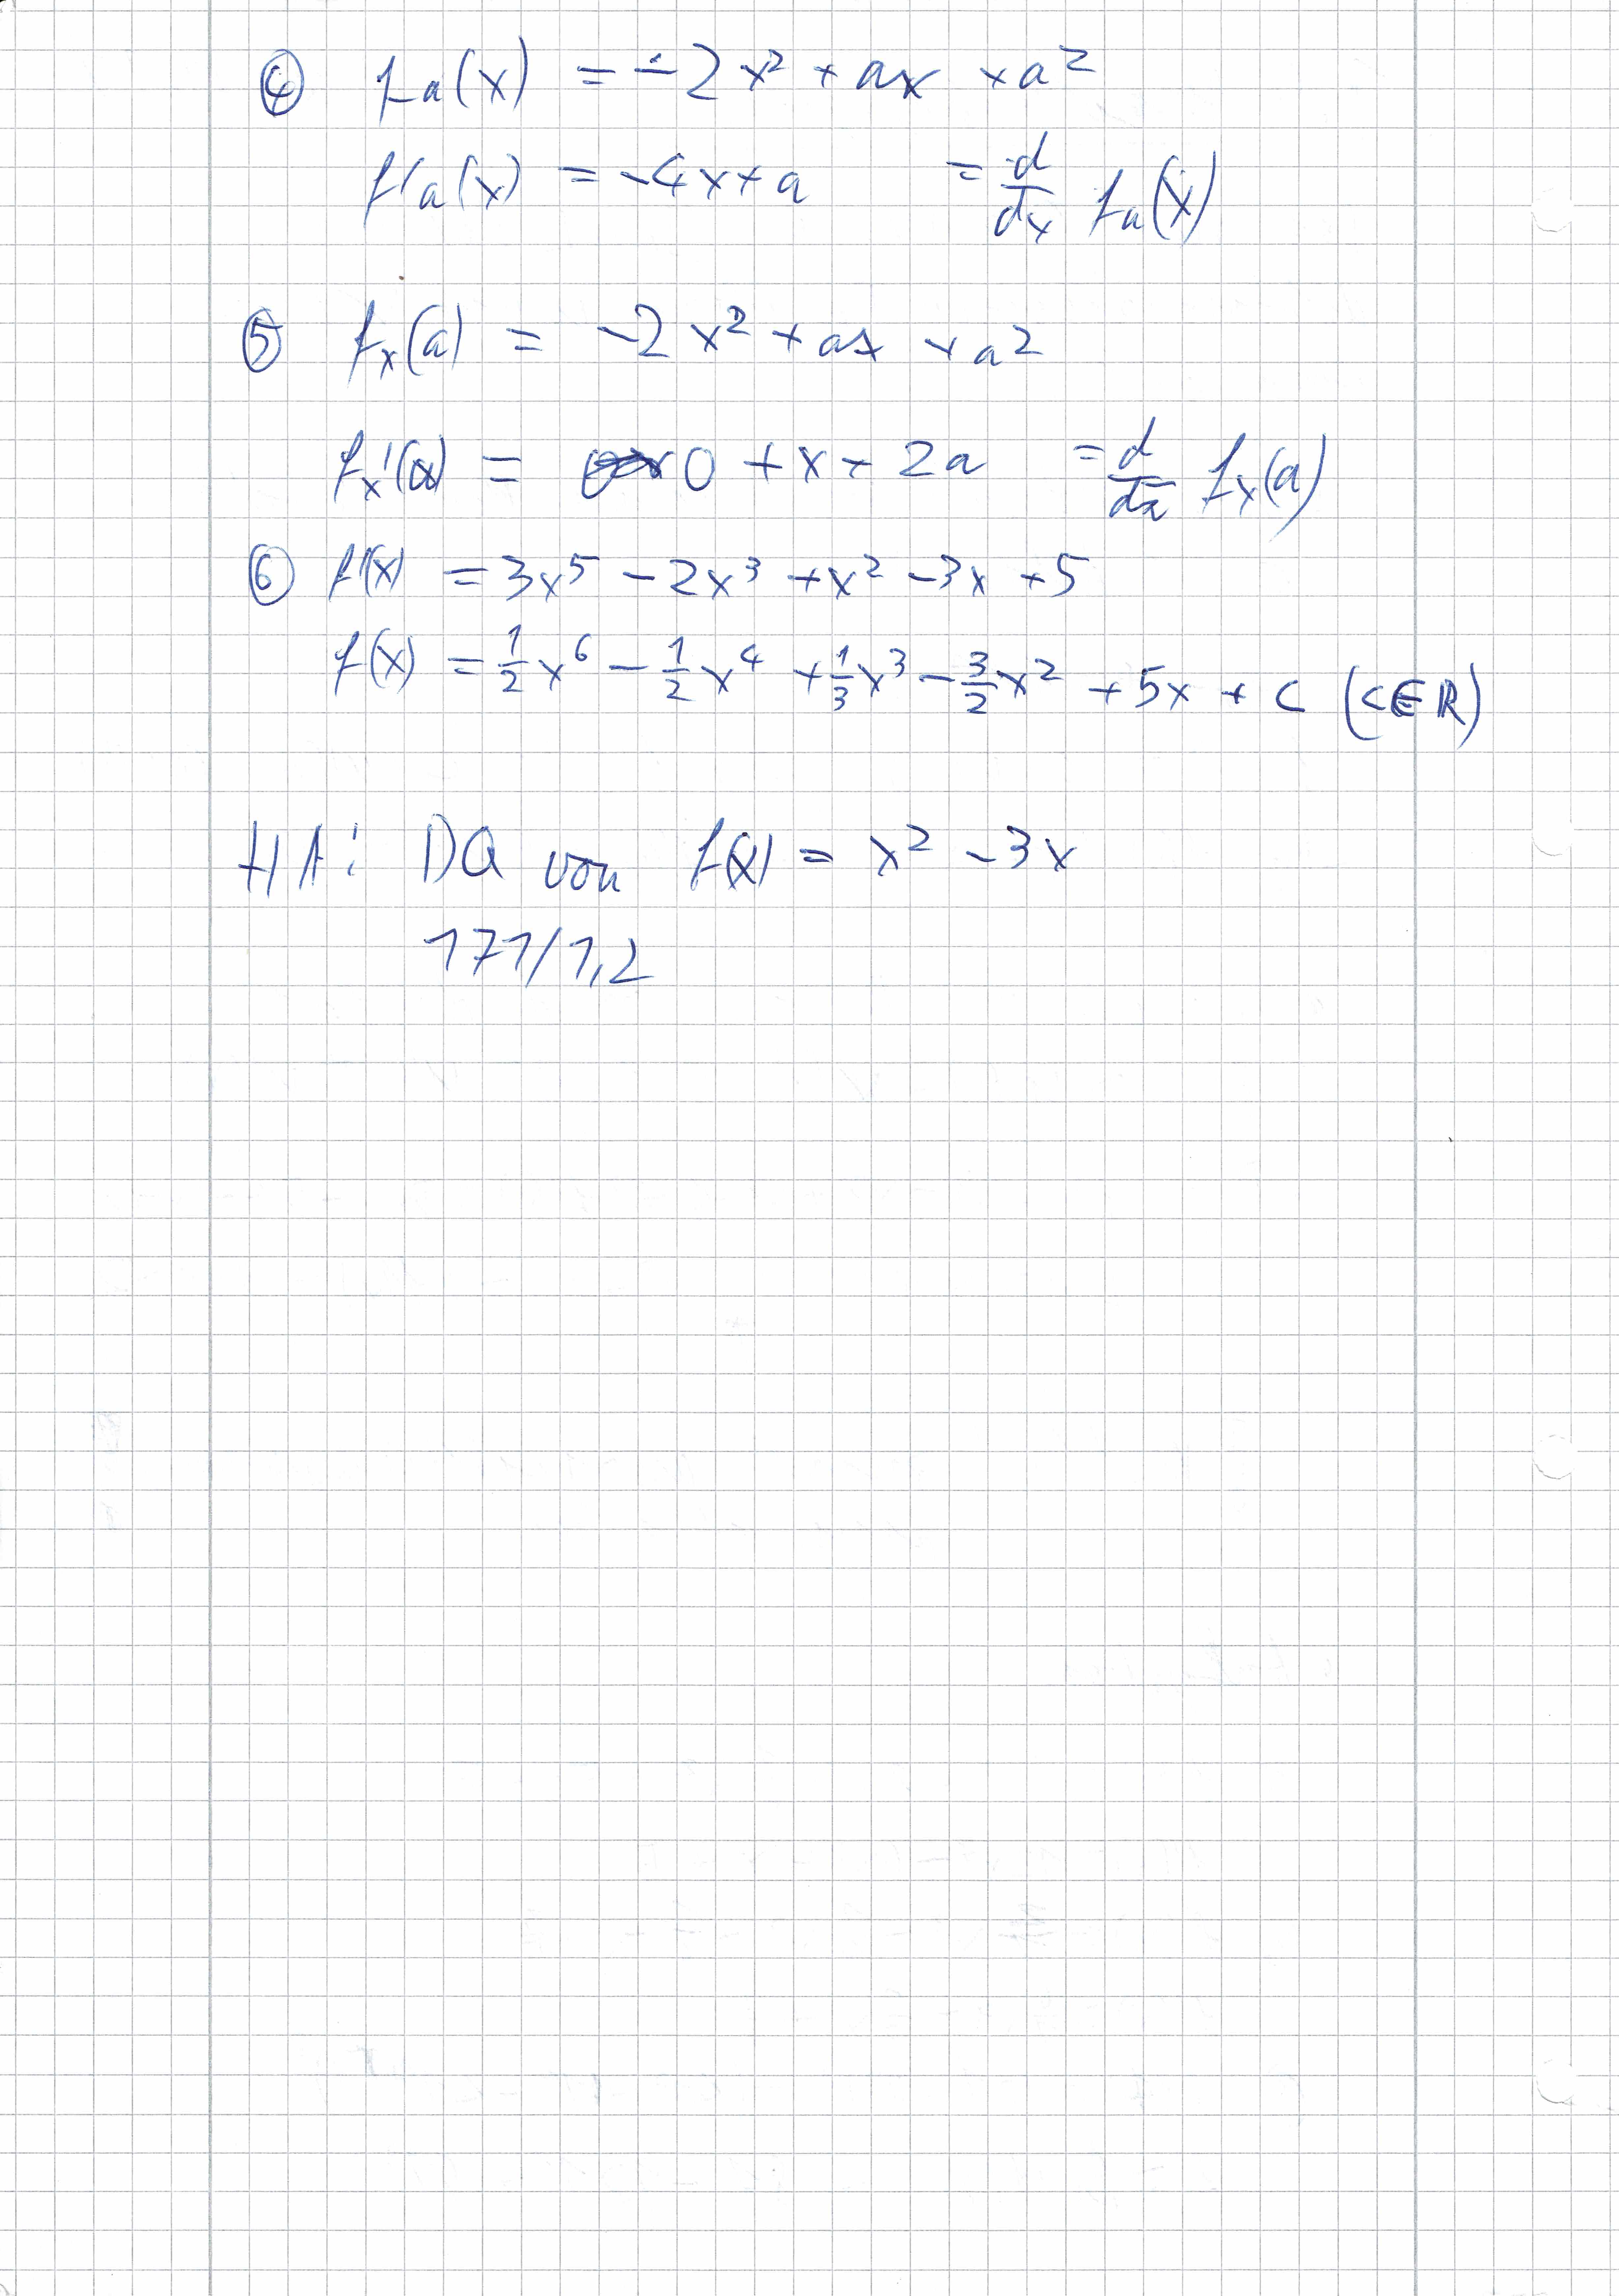 ④ fa(x) = -2x² + ax + a²
f'a(x) = -4x + a = d/dx fa(x)
⑤ fx(a) = -2x² + ax + a²
fx'(a) = 0 + x + 2a = d/da fx(a)
⑥ f'(x) = 3x⁵ - 2x³ + x² - 3x + 5
f(x) = 1/2 x⁶ - 1/2 x⁴ + 1/3 x³ - 3/2 x² + 5x + c (c∈ℝ)
HA: DQ von f(x) = x² - 3x
171/1,2